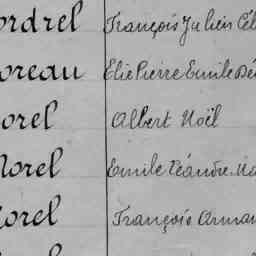 ordrel François Julien Cél
oreau Elie Pierre Emile Dé
orel Albert Noël
Morel Emile Léandre Ma
orel François Arman